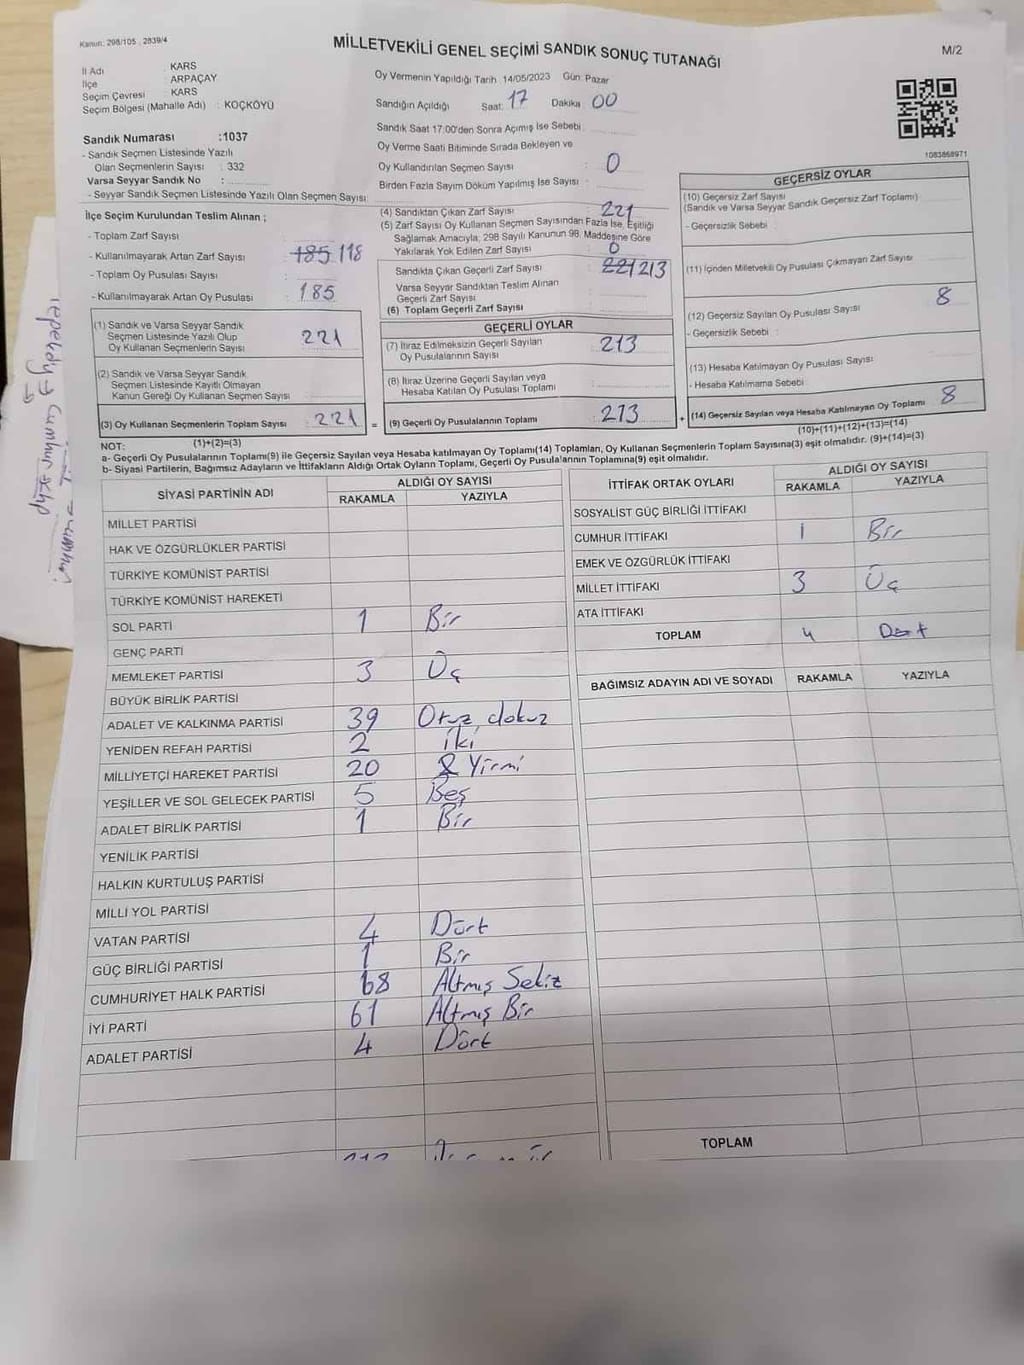 Kanun: 298/105 , 2839/4
MİLLETVEKİLİ GENEL SEÇİMİ SANDIK SONUÇ TUTANAĞI
M/2
İl Adı : KARS
İlçe : ARPAÇAY
Seçim Çevresi : KARS
Seçim Bölgesi (Mahalle Adı) : KOÇKÖYÜ
Sandık Numarası :1037
- Sandık Seçmen Listesinde Yazılı
Olan Seçmenlerin Sayısı : 332
Varsa Seyyar Sandık No :
- Seyyar Sandık Seçmen Listesinde Yazılı Olan Seçmen Sayısı:
Oy Vermenin Yapıldığı Tarih 14/05/2023 Gün: Pazar
Sandığın Açıldığı Saat: 17 Dakika: 00
Sandık Saat 17:00'den Sonra Açılmış İse Sebebi
Oy Verme Saati Bitiminde Sırada Bekleyen ve
Oy Kullandırılan Seçmen Sayısı : 0
Birden Fazla Sayım Döküm Yapılmış İse Sayısı :
1083868971
İlçe Seçim Kurulundan Teslim Alınan ;
- Toplam Zarf Sayısı
- Kullanılmayarak Artan Zarf Sayısı : 185 118
- Toplam Oy Pusulası Sayısı
- Kullanılmayarak Artan Oy Pusulası : 185
(1) Sandık ve Varsa Seyyar Sandık
Seçmen Listesinde Yazılı Olup
Oy Kullanan Seçmenlerin Sayısı : 221
(2) Sandık ve Varsa Seyyar Sandık
Seçmen Listesinde Kayıtlı Olmayan
Kanun Gereği Oy Kullanan Seçmen Sayısı :
(3) Oy Kullanan Seçmenlerin Toplam Sayısı : 221 =
(1)+(2)=(3)
(4) Sandıktan Çıkan Zarf Sayısı : 221
(5) Zarf Sayısı Oy Kullanan Seçmen Sayısından Fazla İse, Eşitliği
Sağlamak Amacıyla; 298 Sayılı Kanunun 98. Maddesine Göre
Yakılarak Yok Edilen Zarf Sayısı : 0
Sandıkta Çıkan Geçerli Zarf Sayısı : 221 213
Varsa Seyyar Sandıktan Teslim Alınan
Geçerli Zarf Sayısı
(6) Toplam Geçerli Zarf Sayısı :
GEÇERLİ OYLAR
(7) İtiraz Edilmeksizin Geçerli Sayılan
Oy Pusulalarının Sayısı : 213
(8) İtiraz Üzerine Geçerli Sayılan veya
Hesaba Katılan Oy Pusulası Toplamı
(9) Geçerli Oy Pusulalarının Toplamı : 213 +
GEÇERSİZ OYLAR
(10) Geçersiz Zarf Sayısı
(Sandık ve Varsa Seyyar Sandık Geçersiz Zarf Toplamı)
- Geçersizlik Sebebi :
(11) İçinden Milletvekili Oy Pusulası Çıkmayan Zarf Sayısı
(12) Geçersiz Sayılan Oy Pusulası Sayısı 8
- Geçersizlik Sebebi :
(13) Hesaba Katılmayan Oy Pusulası Sayısı
- Hesaba Katılmama Sebebi :
(14) Geçersiz Sayılan veya Hesaba Katılmayan Oy Toplamı 8
(10)+(11)+(12)+(13)=(14)
NOT:
a- Geçerli Oy Pusulalarının Toplamı(9) ile Geçersiz Sayılan veya Hesaba katılmayan Oy Toplamı(14) Toplamları, Oy Kullanan Seçmenlerin Toplam Sayısına(3) eşit olmalıdır. (9)+(14)=(3)
b- Siyasi Partilerin, Bağımsız Adayların ve İttifakların Aldığı Ortak Oyların Toplamı, Geçerli Oy Pusulalarının Toplamına(9) eşit olmalıdır.
SİYASİ PARTİNİN ADI
ALDIĞI OY SAYISI
RAKAMLA YAZIYLA
MİLLET PARTİSİ
HAK VE ÖZGÜRLÜKLER PARTİSİ
TÜRKİYE KOMÜNİST PARTİSİ
TÜRKİYE KOMÜNİST HAREKETİ
SOL PARTİ 1 Bir
GENÇ PARTİ
MEMLEKET PARTİSİ 3 Üç
BÜYÜK BİRLİK PARTİSİ
ADALET VE KALKINMA PARTİSİ 39 Otuz dokuz
YENİDEN REFAH PARTİSİ 2 İki
MİLLİYETÇİ HAREKET PARTİSİ 20 Yirmi
YEŞİLLER VE SOL GELECEK PARTİSİ 5 Beş
ADALET BİRLİK PARTİSİ 1 Bir
YENİLİK PARTİSİ
HALKIN KURTULUŞ PARTİSİ
MİLLİ YOL PARTİSİ
VATAN PARTİSİ 4 Dört
GÜÇ BİRLİĞİ PARTİSİ 1 Bir
CUMHURİYET HALK PARTİSİ 68 Altmış Sekiz
İYİ PARTİ 61 Altmış Bir
ADALET PARTİSİ 4 Dört
İTTİFAK ORTAK OYLARI
ALDIĞI OY SAYISI
RAKAMLA YAZIYLA
SOSYALİST GÜÇ BİRLİĞİ İTTİFAKI
CUMHUR İTTİFAKI 1 Bir
EMEK VE ÖZGÜRLÜK İTTİFAKI
MİLLET İTTİFAKI 3 Üç
ATA İTTİFAKI
TOPLAM 4 Dört
BAĞIMSIZ ADAYIN ADI VE SOYADI RAKAMLA YAZIYLA
TOPLAM